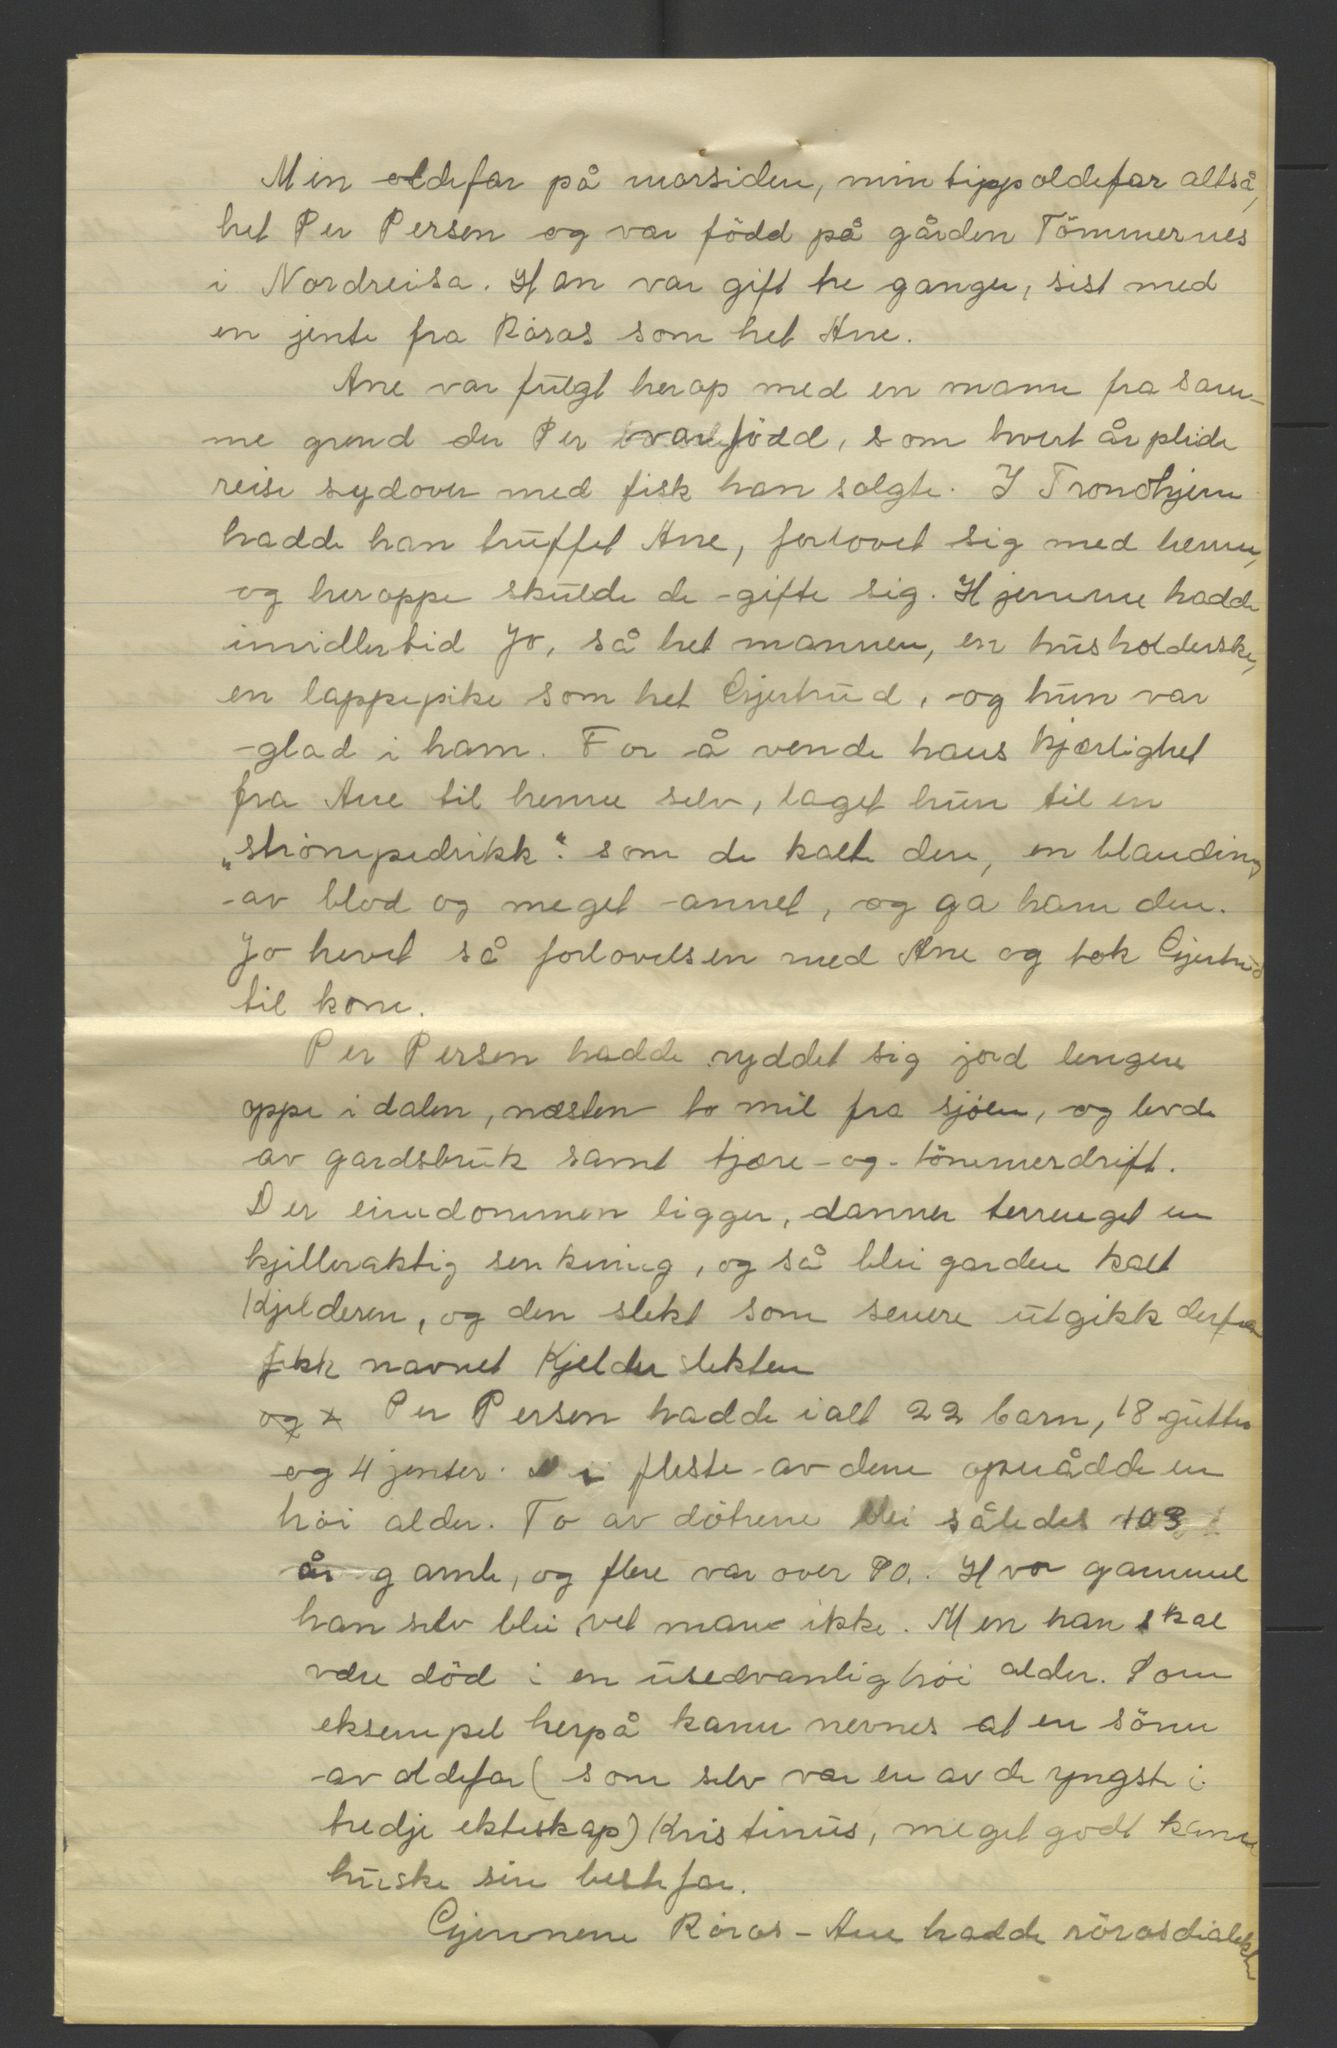 Min oldefar på morsiden, min tippoldefar altså,
het Per Persen og var född på gården Tömmernes
i Nordreisa. Han var gift tre ganger, sist med
en jente fra Röros som het Ane.
Ane var fulgt herop med en mann fra sam-
me grend der Per var född, som hvert år pleide
reise sydover med fisk han solgte. I Trondhjem
hadde han truffet Ane, forlovet sig med henne,
og heroppe skulde de gifte sig. Hjemme hadde
imidlertid Jo, så het mannen, en husholderske,
en lappepike som het Gjertrud, og hun var
glad i ham. For å vende hans kjærlighet
fra Ane til henne selv, laget hun til en
„strömpedrikk“ som de kalte den, en blanding
av blod og meget annet, og ga ham den.
Jo hevet så forlovelsen med Ane og tok Gjertrud
til kone.
Per Persen hadde ryddet sig jord lengere
oppe i dalen, næsten to mil fra sjöen, og levde
av gardsbruk samt tjære- og tömmerdrift.
Der eiendommen ligger, danner terrenget en
kjelleraktig senkning, og så blei garden kalt
Kjelderen, og den slekt som senere utgikk derfra
fikk navnet Kjelderslekten
og x Per Persen hadde ialt 22 barn, 18 gutter
og 4 jenter. De fleste av dem opnådde en
höi alder. To av dötrene blei således 103
år gamle, og flere var over 90. Hvor gammel
han selv blei vet man ikke. Men han skal
være död i en usedvanlig höi alder. Som
eksempel herpå kann nevnes at en sönn
av oldefar (som selv var en av de yngste i
tredje ekteskap) Kristinus, meget godt kann
huske sin bestefar.
Gjennem Röros-Ane hadde rörosdialekten